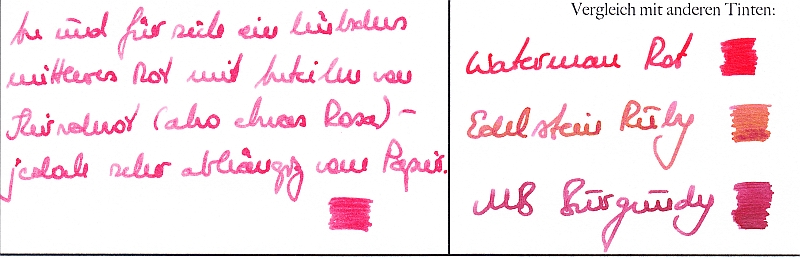 und für sich ein hübsches
mittleres Rot mit Anteilen von
(also etwas Rosa) –
jedoch sehr abhängig vom Papier.
Vergleich mit anderen Tinten:
Waterman Rot
Edelstein Ruby
MB Burgundy